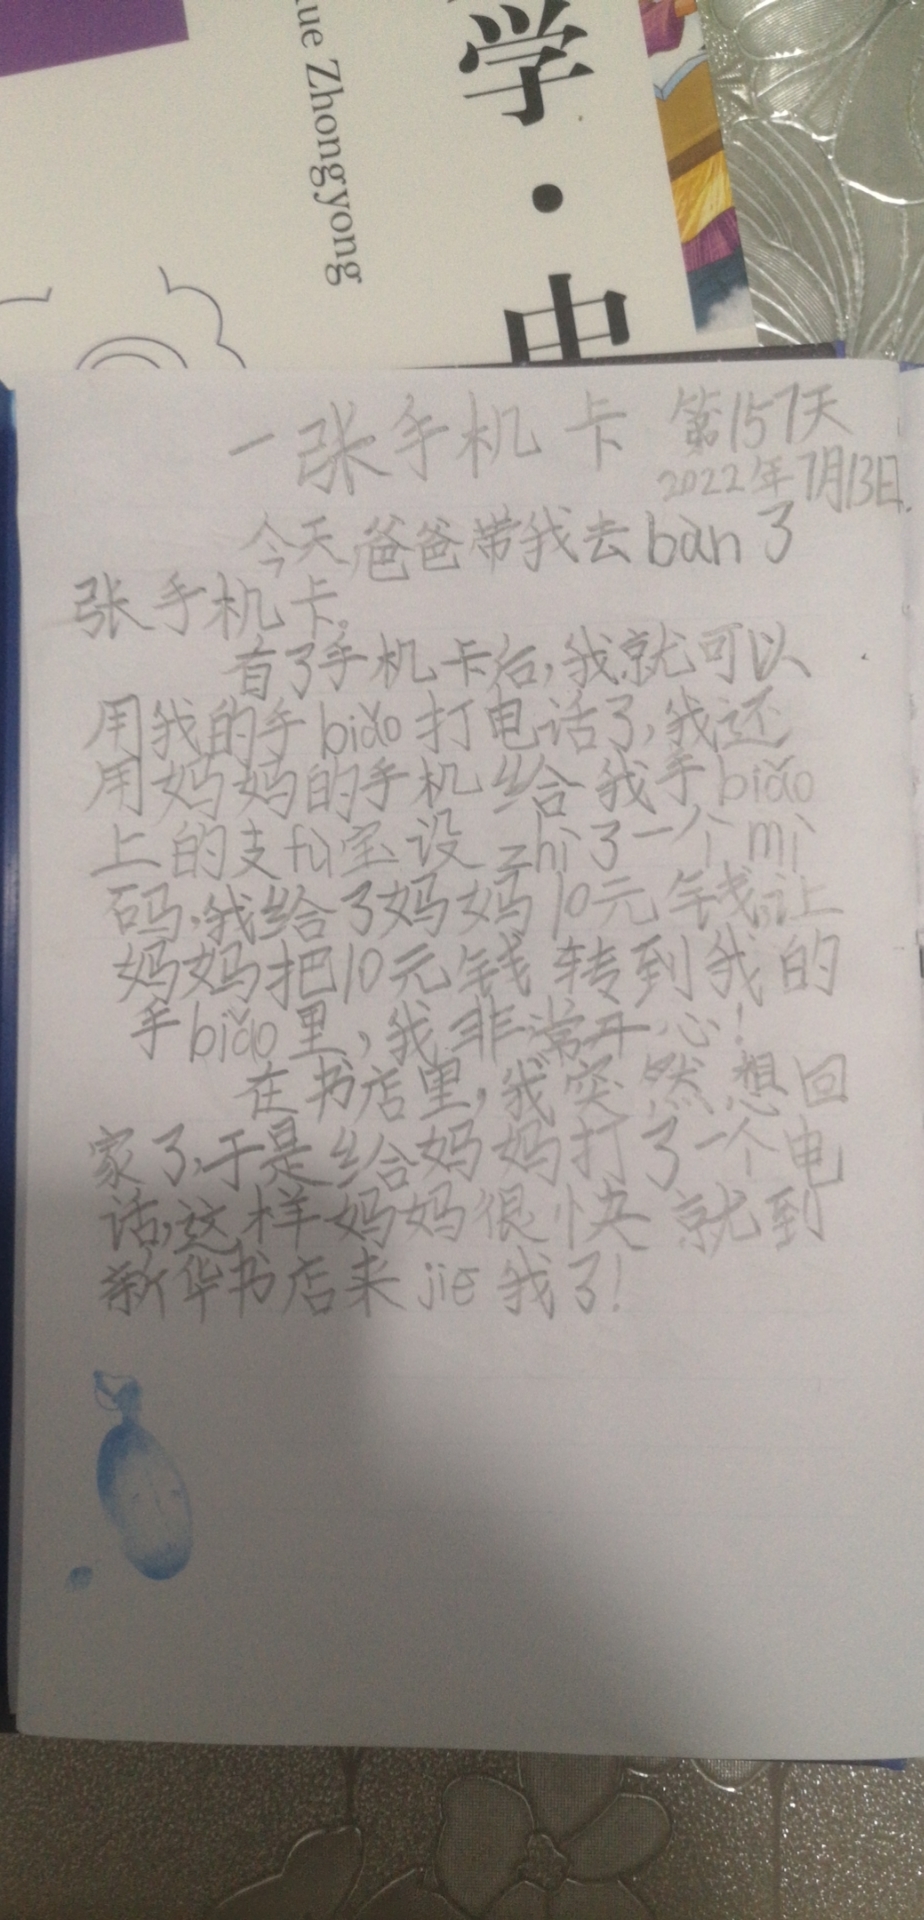 学·中
ue Zhongyong
一张手机卡 第157天
2022年7月13日
今天爸爸带我去bàn了
张手机卡。
有了手机卡后,我就可以
用我的手biǎo打电话了,我还
用妈妈的手机给我手biǎo
上的支fù宝设zhì了一个mì
码,我给了妈妈10元钱,让
妈妈把10元钱转到我的
手biǎo里,我非常开心!
在书店里,我突然想回
家了,于是给妈妈打了一个电
话,这样妈妈很快就到
新华书店来jiē我了!